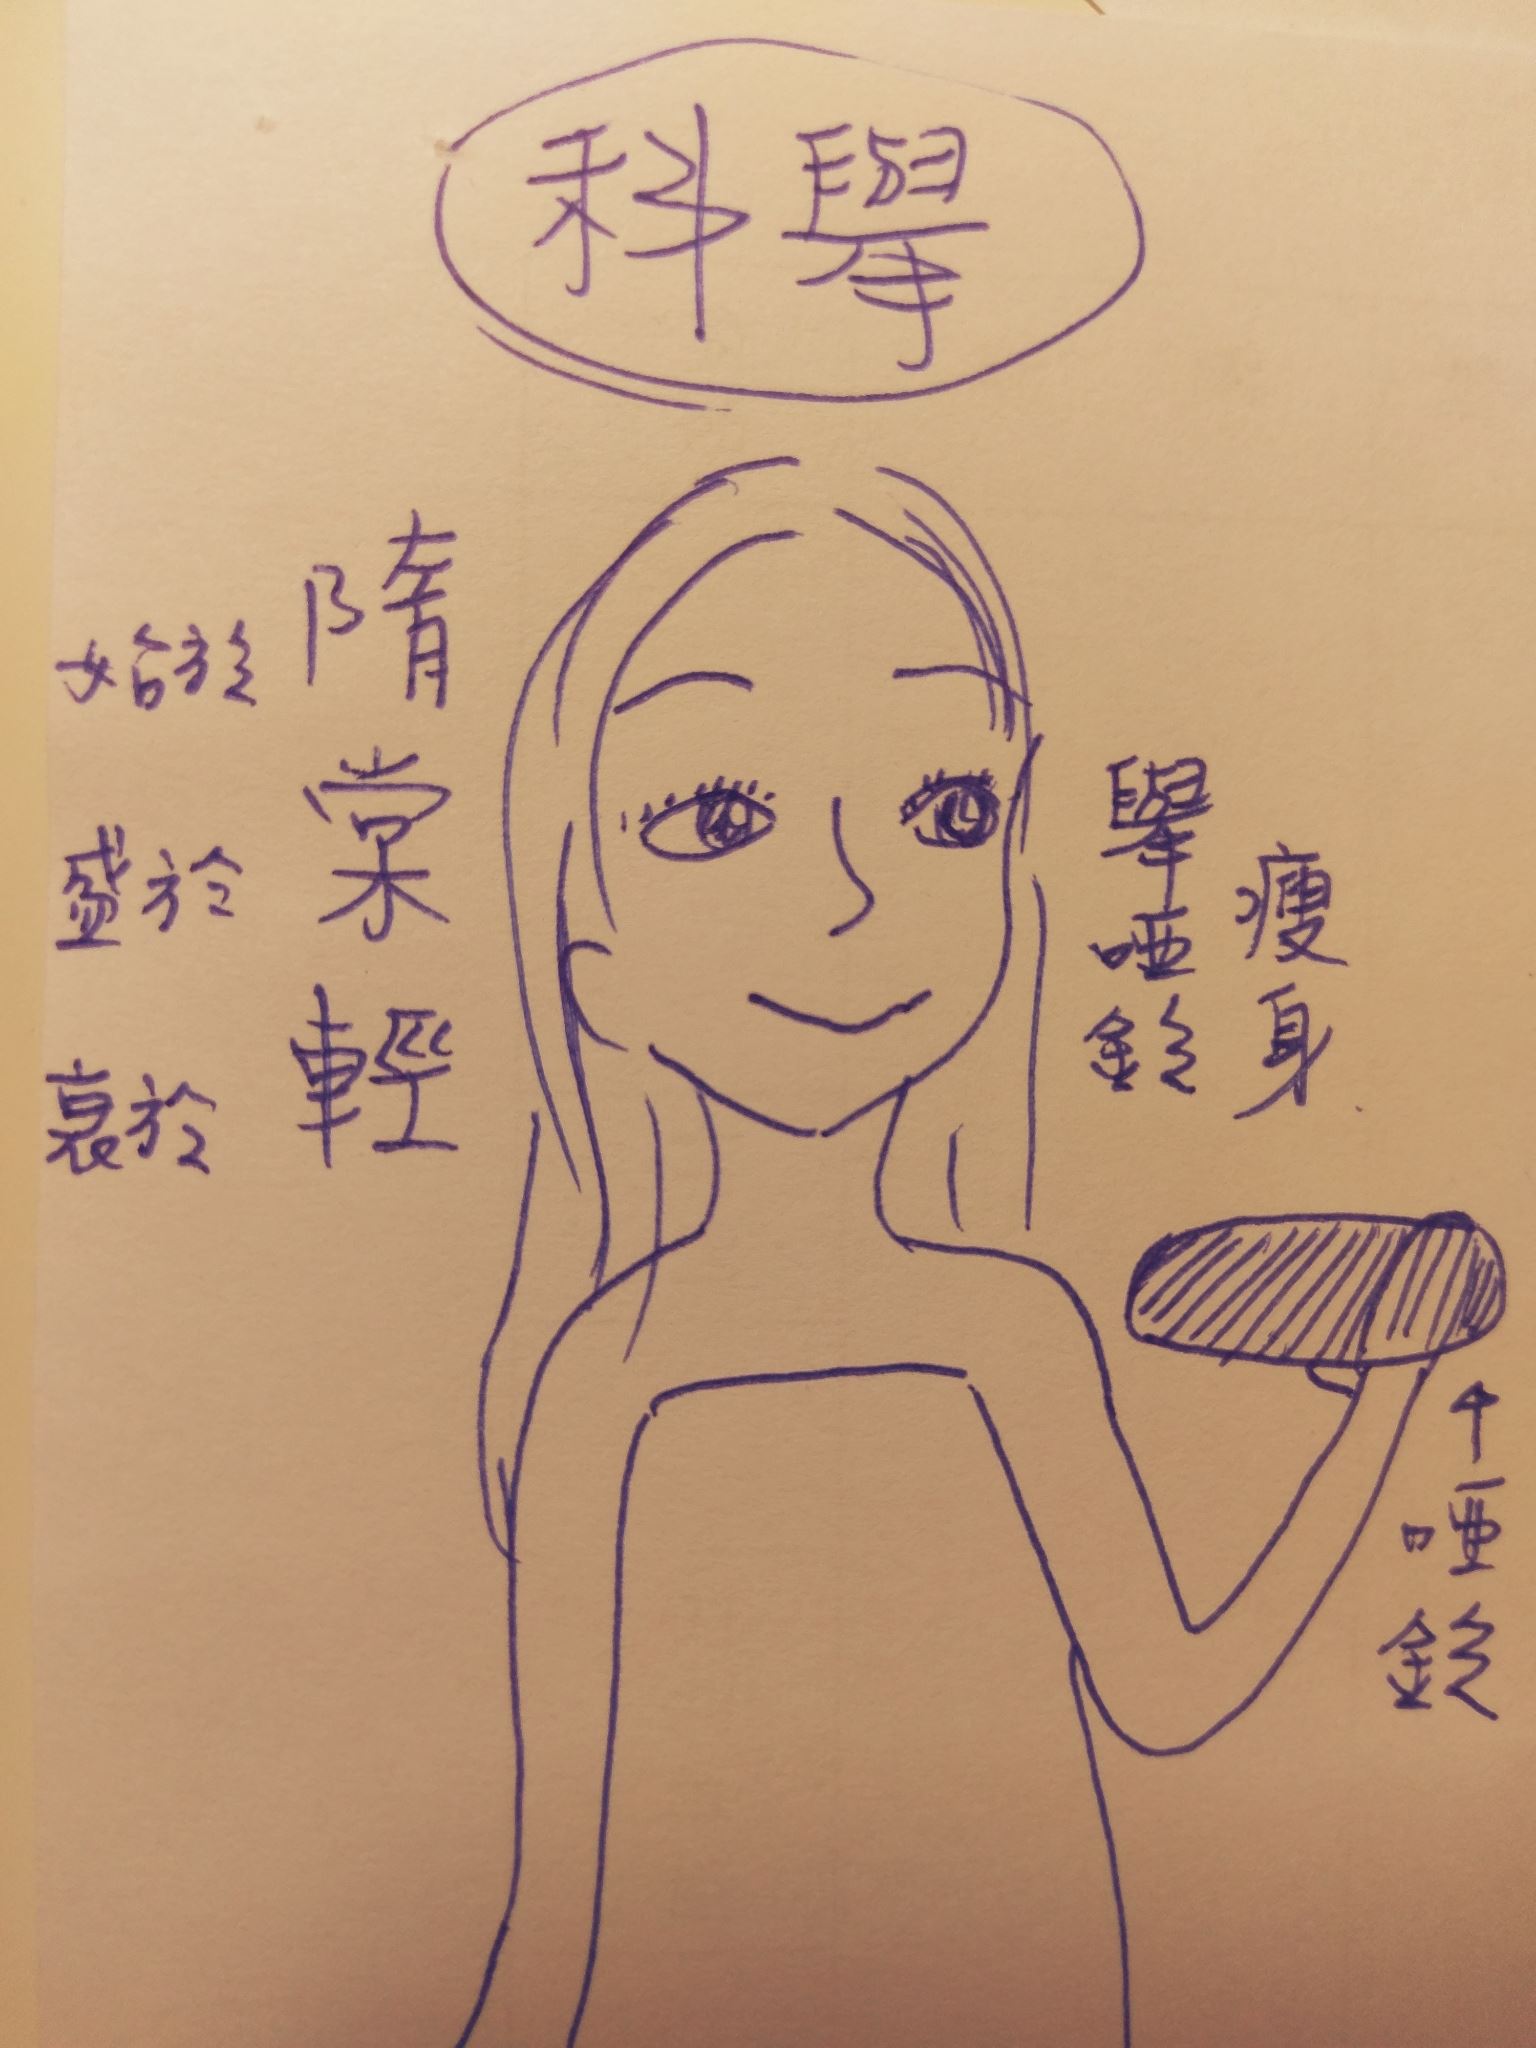 科舉
始於隋
盛於棠
衰於輕
舉啞鈴
瘦身
啞鈴